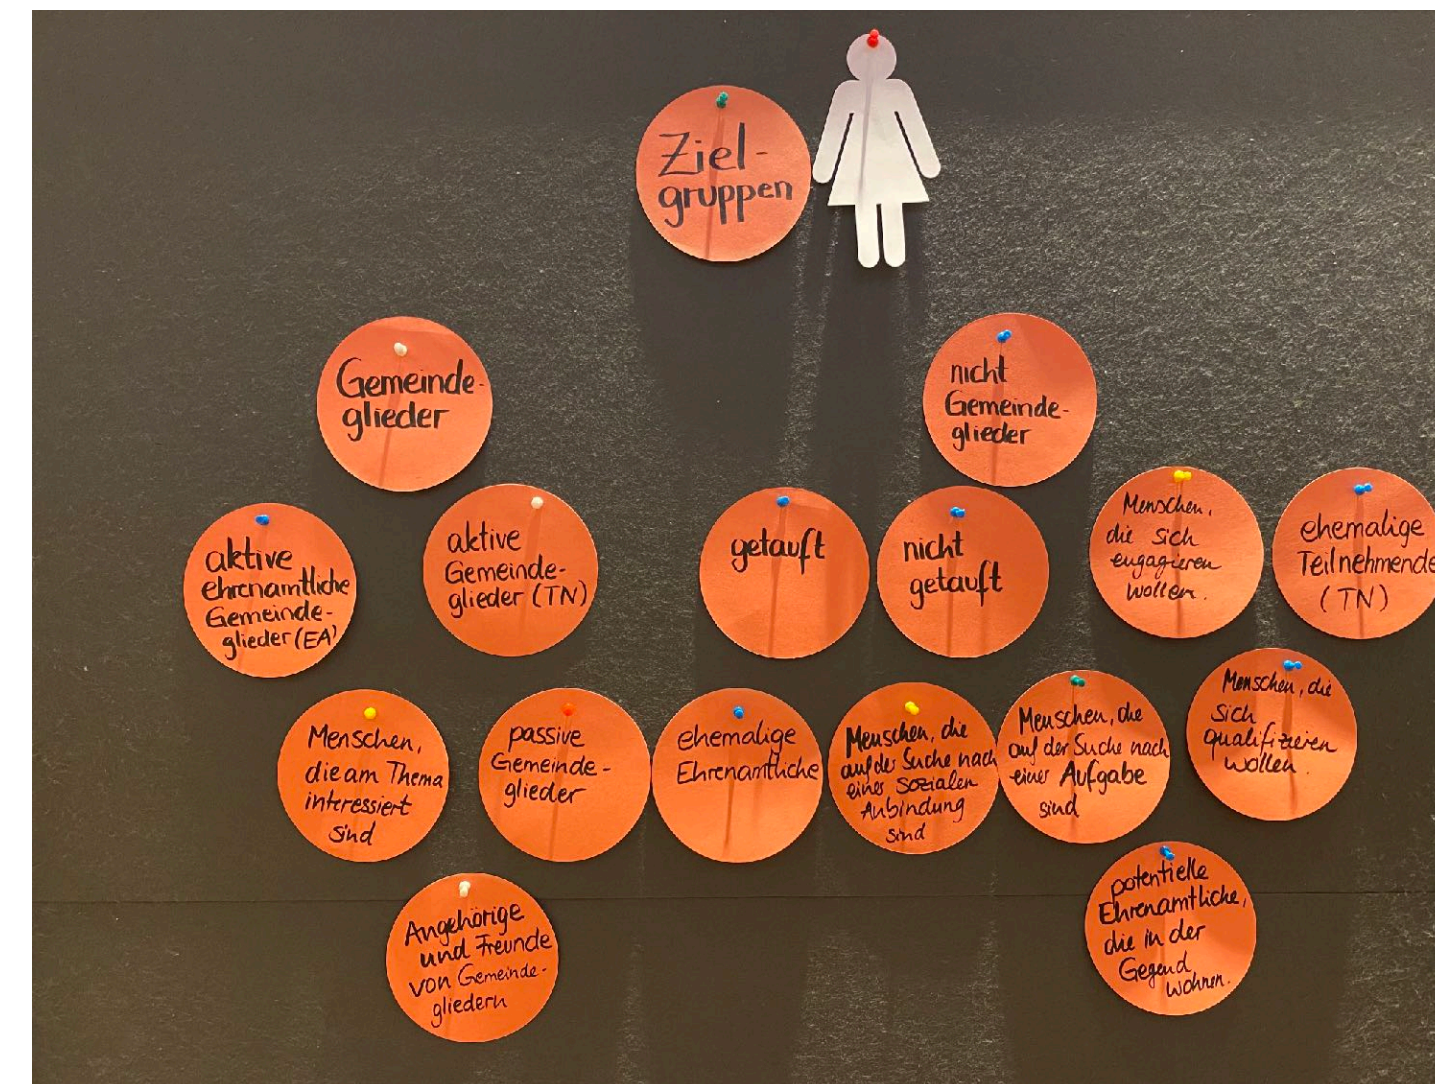 Ziel-
gruppen
Gemeinde-
glieder
nicht
Gemeinde-
glieder
aktive
ehrenamtliche
Gemeinde-
glieder (EA)
aktive
Gemeinde-
glieder (TN)
getauft
nicht
getauft
Menschen,
die sich
engagieren
wollen.
ehemalige
Teilnehmende
(TN)
Menschen,
die am Thema
interessiert
sind
passive
Gemeinde-
glieder
ehemalige
Ehrenamtliche
Menschen, die
auf der Suche nach
einer sozialen
Anbindung
sind
Menschen, die
auf der Suche nach
einer Aufgabe
sind
Menschen, die
sich
qualifizieren
wollen.
Angehörige
und Freunde
von Gemeinde-
gliedern
potentielle
Ehrenamtliche,
die in der
Gegend
wohnen.